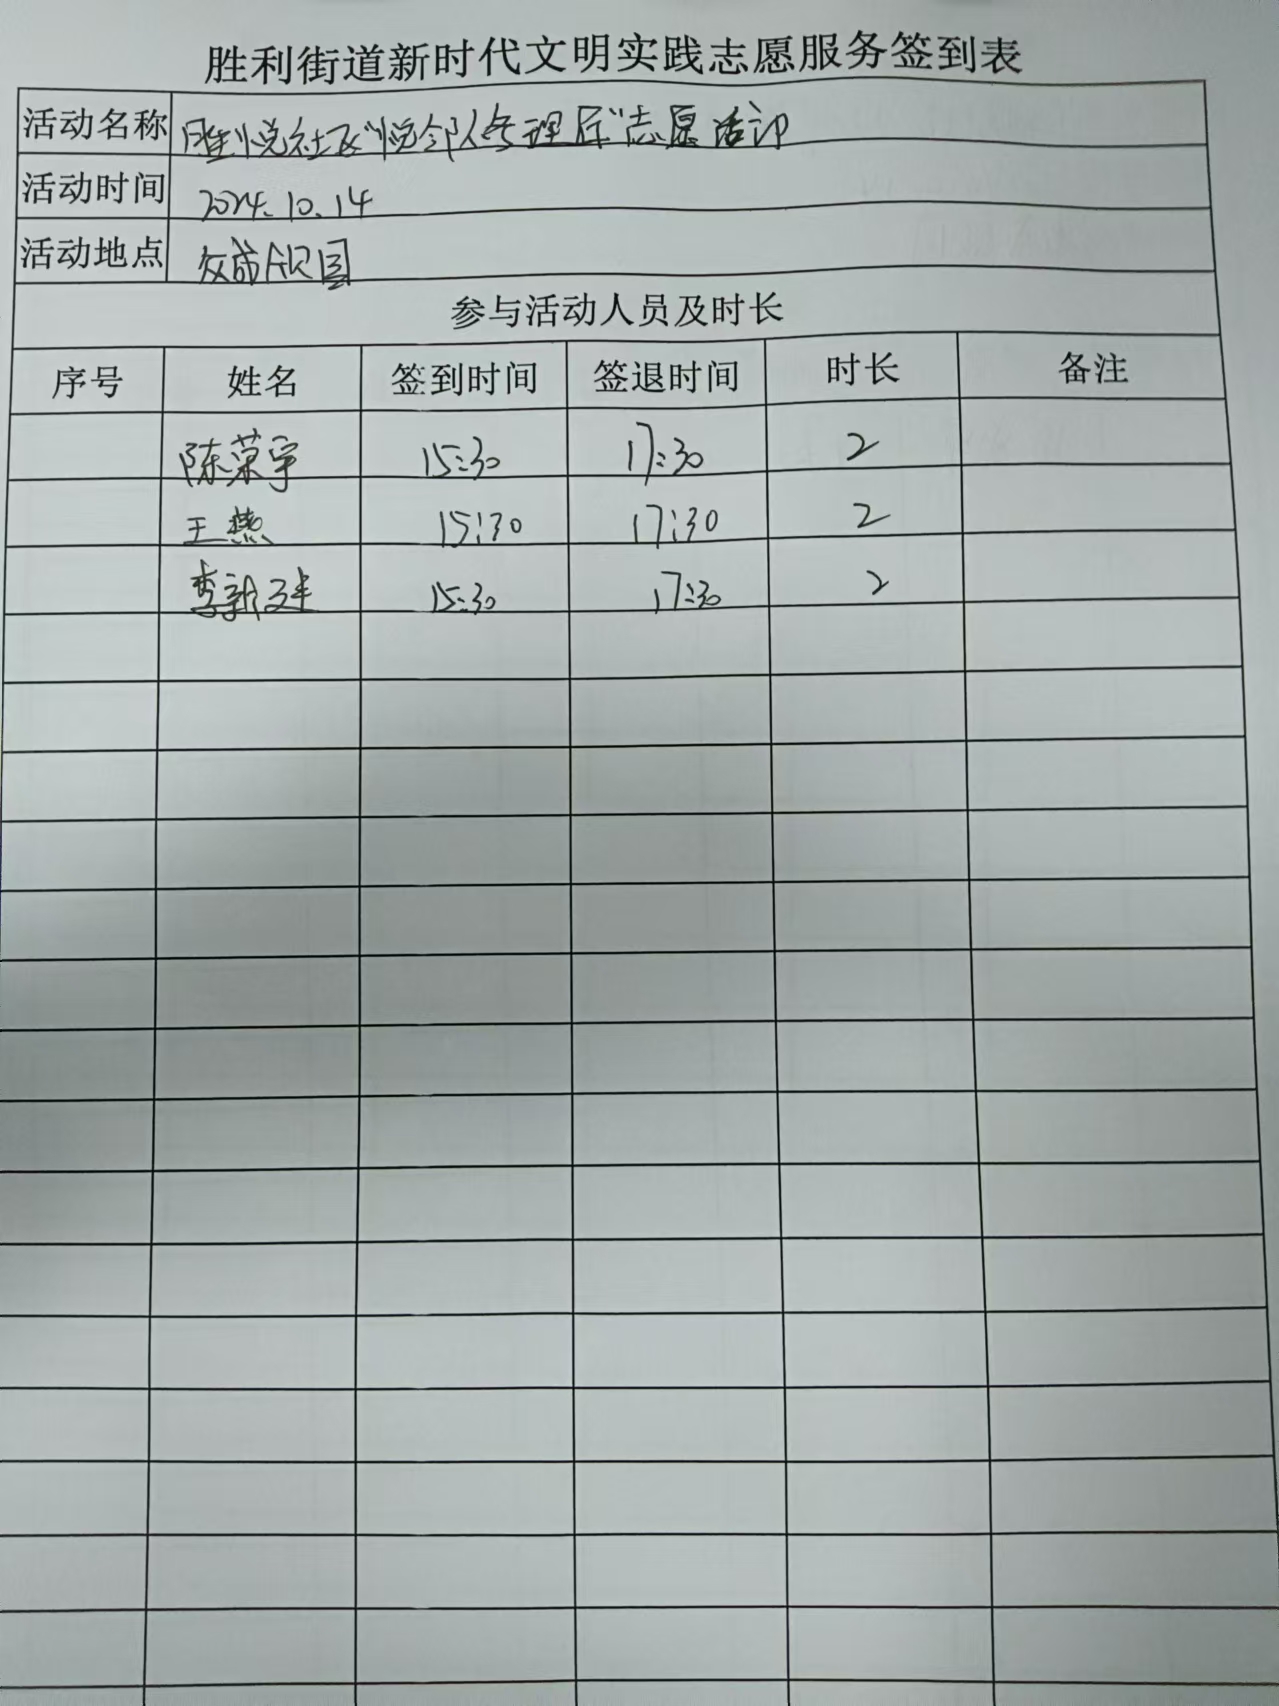 胜利街道新时代文明实践志愿服务签到表
活动名称 胜悦社区"悦邻人冬理厅"志愿活动
活动时间 2024.10.14
活动地点 友成欣园
参与活动人员及时长
序号 姓名 签到时间 签退时间 时长 备注
陈荣宇 15:30 17:30 2
王燕 15:30 17:30 2
李新建 15:30 17:30 2